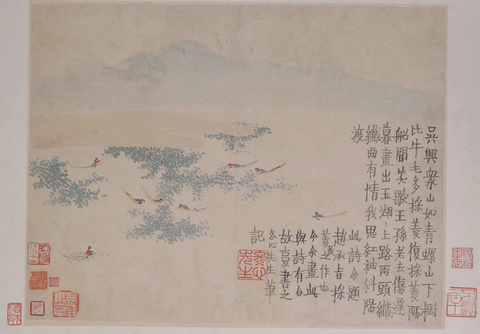 吳興衆山如青螺山下樹
比牛毛多採菱復採菱隔
船聞笑歌王孫老去傷遲
暮畫出玉湖湖上路兩頭纖
纖曲有情我思紅袖斜陽
渡
此詩余題
趙承旨採
菱圖作也
今余畫此
與詩有合
故復書之
冬心先生筆
記
冬心先生